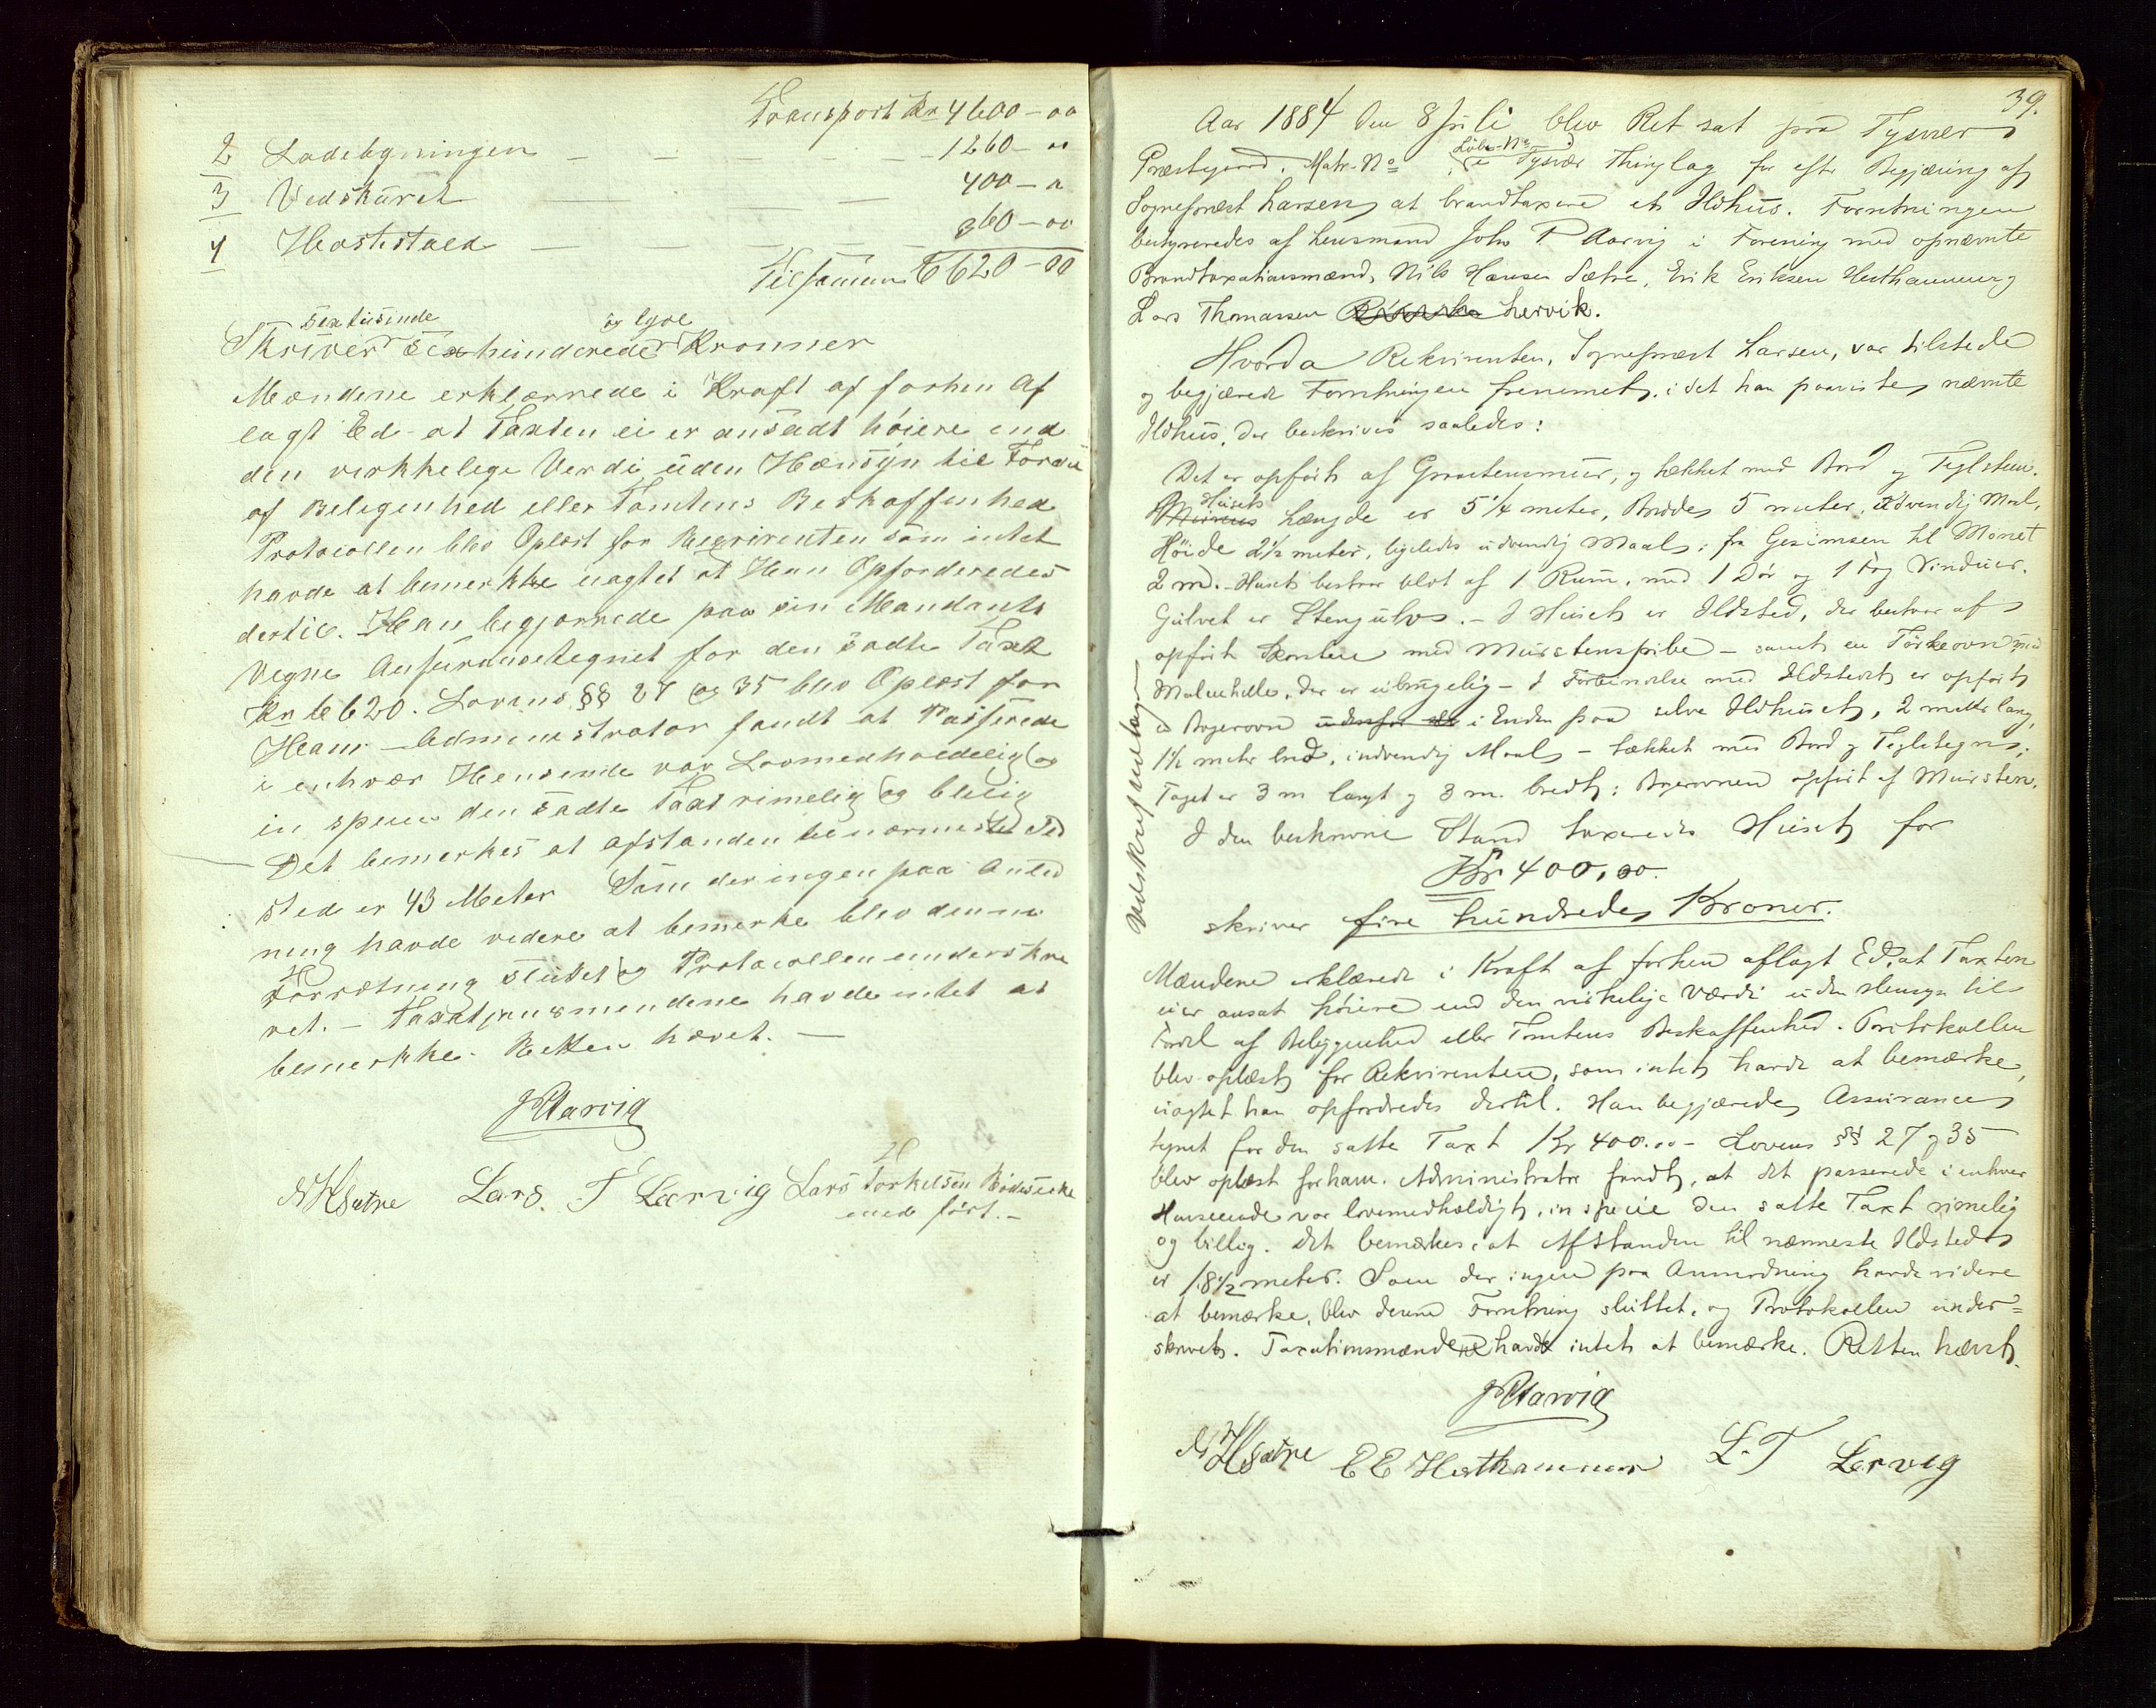 Transport Kr 4600-00
2 Ladebygningen — — — — 1260-00
3 Vedskuret — — 400-00
4 Hestestald — — — 360-00
Tilsamen 6620-00
sextusinde og tyve
Skriver sexhunderede Kronner
Mændene erklærrede i Kraft af forhen Af
lagt Ed at Taxten ei er ansadt höiere end
den virkkelige Verdi uden Hænsyn til Fordel
af Beligenhed eller Tomtens Beskaffenhed
Protocollen blev Oplæst for Reqvirenten som intet
havde at bemerkke uagtet at Han Opforderedes
dertil. Han begjærrede paa sin Mandants
Vegne Assuransetegnet for den sadte Taxt
Kr 6620. Lovens §§ 27 og 35 blev Oplæst for
Ham – Administrator fandt at Passerede
i enhvær Hensende var Lovmedholdelig og
in specie den sadte Taxt rimelig og billig
Det bemerkes at afstanden til nærmeste Ild
sted er 43 Meter Som der ingen paa Anled
ning havde videre at bemerke blev denne
Forrætning sluttet og Protocollen underskre
vet. – Taxatjonsmendene havde intet at
bemerkke. Retten hævet. —
JPAarvig
NHSætre Lars. T Lervig Lars Torkelsen
med fört. –
39.
Aar 1884 den 8 Juli blev Ret sat paa Tysvær
Præstegaard. Matr-No Löbe-No i Tysvær Thinglag for efter Begjæring af
Sognepræst Larsen at brandtaxere et Ildhus. Forretningen
bestyreredes af Lensmand John P Aarvig i Forening med opnævnte
Brandtaxationsmænd, Nils Hansen Sætre, Erik Eriksen Hesthammer og
Lars Thomassen Lervik.
Hvorda Rekvirenten, Sognepræst Larsen, var tilstede
og begjærede Forretningen fremmet, idet han paaviste nævnte
Ildhus, der beskrives saaledes:
Det er opfört af Graastensmur, og tækket med Bord og Teglsten.
Husets Længde er 5 1/4 meter, Bredde 5 meter, udvendig Maal,
Höide 2 1/2 meter, ligeledes udvendig Maal; fra Gesimsen til Mönet
2 m. – Huset bestaar blot af 1 Rum, med 1 Dör og 1 Fag Vinduer.
Gulvet er Stengulv. – I Huset er Ildsted, der bestaar af
opfört Skorsten med Murstenspibe – samt en Törkeovn med
Malmhelle, der er ubrugelig – I Forbindelse med Ildstedet er opfört
en Bagerovn udenfor i Enden paa selve Ildhuset, 2 meter lang,
1 1/2 meter bred, indvendig Maal – tækket med Bord og Tegltegn;
Taget er 3 m langt og 3 m. bredt; Bagerovnen opfört af Mursten.
I den beskrevne Stand taxeredes Huset for
Kr 400,00.
skriver fire hundrede Kroner.
Mændene erklærede i Kraft af forhen aflagt Ed, at Taxten
ei er ansat höiere end den virkelige Værdi uden Hensyn til
Fordel af Beliggenhed eller Tomtens Beskaffenhed. Protokollen
blev oplæst for Rekvirenten, som intet havde at bemærke,
uagtet han opfordredes dertil. Han begjærede Assurance
tegnet for den satte Taxt Kr 400.00 – Lovens §§ 27 og 35
blev oplæst for ham. Administrator fandt, at det passerede i enhver
Henseende var lovmedholdigt, in specie den satte Taxt rimelig
og billig. Det bemærkes, at Afstanden til nærmeste Ildsted
er 18 1/2 meter. Som der ingen paa Anmodning havde videre
at bemærke, blev denne Forretning sluttet, og Protokollen under=
skrevet. Taxationsmændene havde intet at bemærke. Retten hævet.
JPAarvig
NHSætre EE Hesthammer L. T Lervig